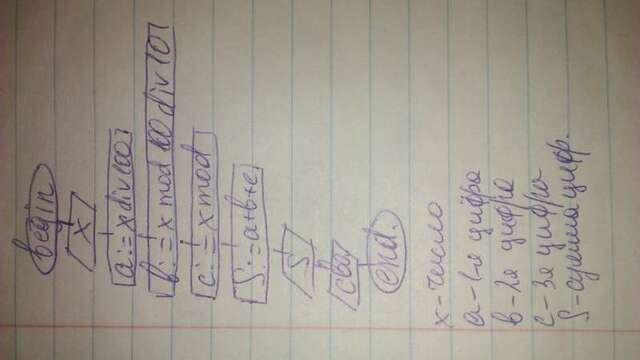 begin
x
a:=x div 100
в:=x mod 100 div 10
c:=x mod
S:=a+в+c
S
end.
x-число
a-1-я цифра
в-2я цифра
c-3я цифра
S-сумма цифр.